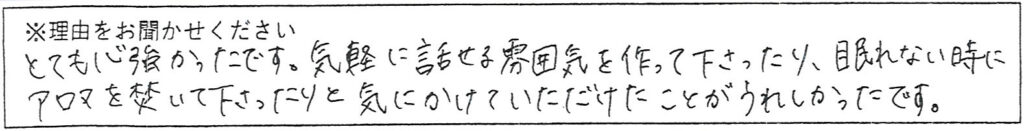 ※理由をお聞かせください
とても心強かったです。気軽に話せる雰囲気を作って下さったり、眠れない時に
アロマを焚いて下さったりと気にかけていただけたことがうれしかったです。